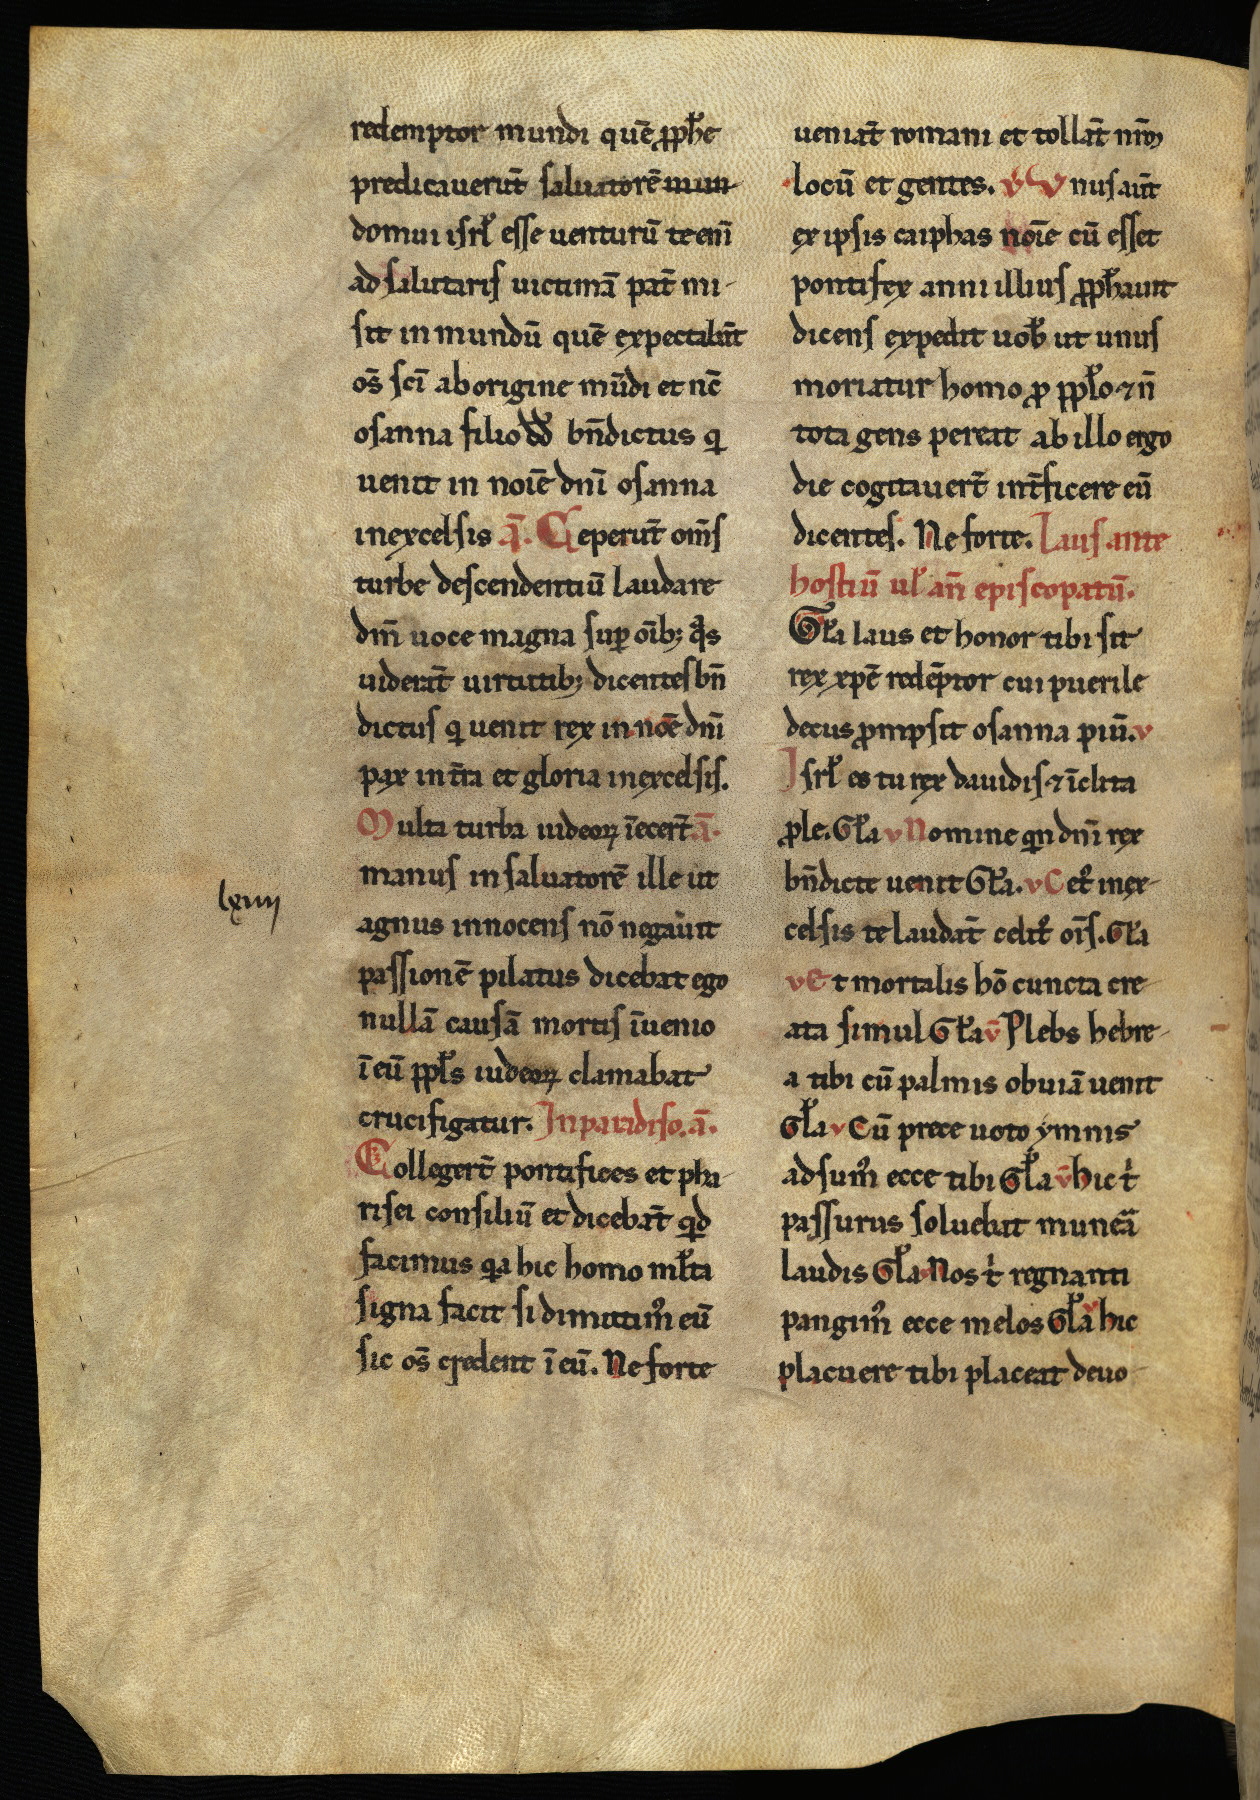 redemptor mundi quē ꝓph̄e
predicauerūt saluatorē mun
domui isrł esse uenturū te eni̅
ad salutaris uictimā pat̄ mi-
sit in mundū quē expectabāt
os̄ sc̄i ab origine mūdi et nc̄
osanna filio dd bn̄dictus q
uenit in noīe dn̄i osanna
in excelsis a̅. Ceperūt om̄s
turbe descendentiū laudare
dm̄ uoce magna sup oībꝫ q̄s
uiderāt uirtutibꝫ dicentes bn̄
dictus q uenit rex in noē dn̄i
pax in t̄ra et gloria in excelsis.
Multa turba iudeoꝝ īiecer̄t a̅.
manus in saluatorē ille ut
agnus innocens nō negauit
passionē pilatus dicebat ego
nullā causā mortis īuenio
ī eū ppłs iudeoꝝ clamabat
crucifigatur. In paradiso. a̅.
Collegert̄ pontifices et pha
risei consiliū et dicebāt qd
facimus qa hic homo młta
signa facit si dimittim᷒ eū
sic os̄ credent ī eū. Ne forte
lxiiii
ueniāt romani et tollāt nr̄m
locū et gentes. v Vnus aūt
ex ipsis caiphas noīe cū esset
pontifex anni illius ꝓph̄auit
dicens expedit uob̄ ut unus
moriatur homo ꝓ ppło ⁊ n̄
tota gens pereat ab illo ergo
die cogitauert̄ int̄ficere eū
dicentes. Ne forte. Laus ante
hostiū uł an̄ episcopatū.
Gła laus et honor tibi sit
rex xpē redēptor cui puerile
decus ꝓmpsit osanna piū. v
Isrł es tu rex dauidis ⁊ īclita
ꝓle. Gła v Nomine qi̅ dn̄i rex
bn̄dicte uenit Gła. v Cet᷒ in ex-
celsis te laudat̄ celit᷒ oīs. Gła
v Et mortalis hō cuncta cre-
ata simul Gła v Plebs hebre-
a tibi cū palmis obuiā uenit
Gła v Cū prece uoto ymnis
adsum᷒ ecce tibi Gła v hic t̄
passurus soluebat munera
laudis Gła Nos t̄ regnanti
pangim᷒ ecce melos Gła v hic
placuere tibi placeat deuo